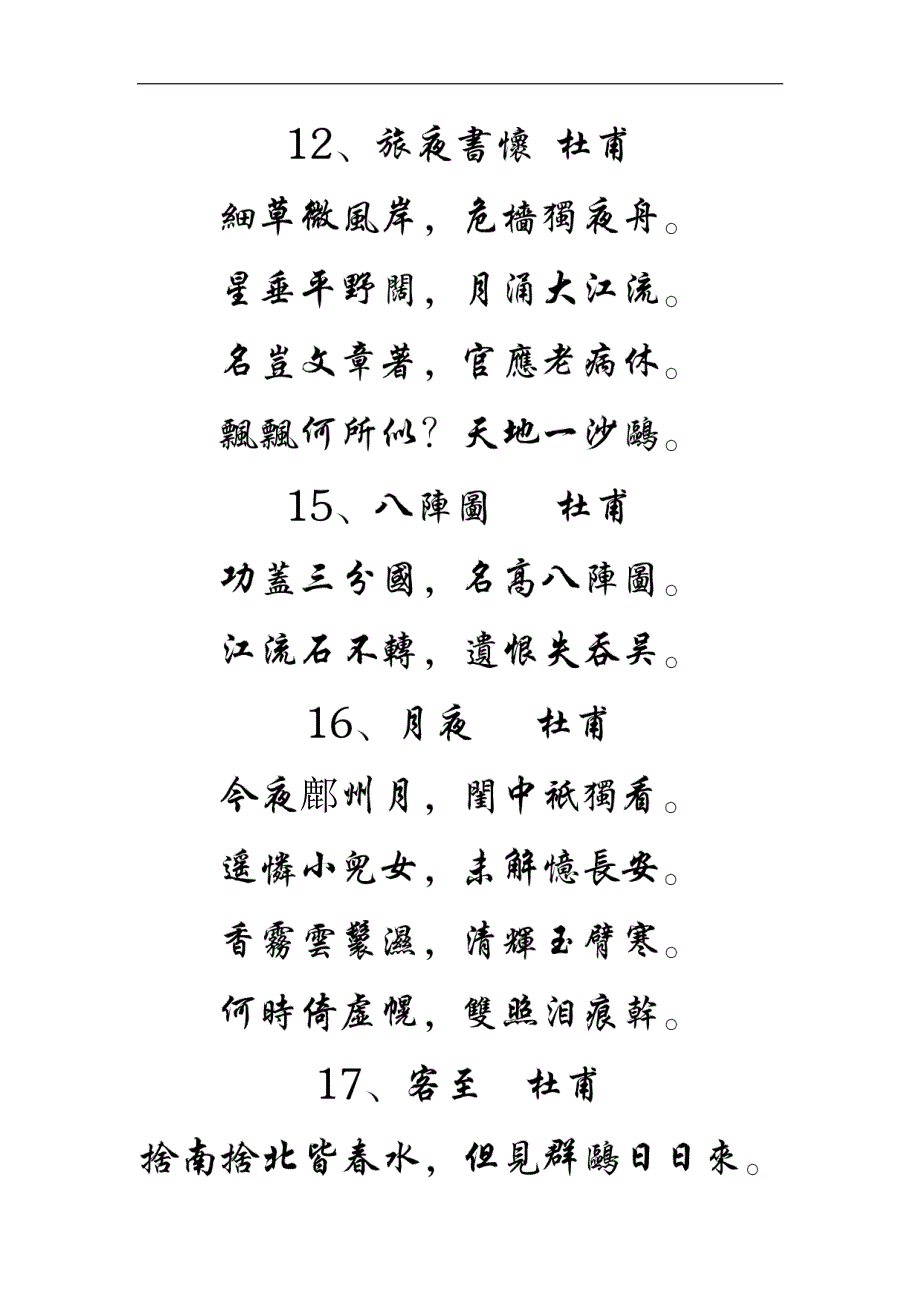 12、旅夜書懷 杜甫
細草微風岸，危檣獨夜舟。
星垂平野闊，月涌大江流。
名豈文章著，官應老病休。
飄飄何所似？天地一沙鷗。
15、八陣圖 杜甫
功蓋三分國，名高八陣圖。
江流石不轉，遺恨失吞吴。
16、月夜 杜甫
今夜鄜州月，閨中祇獨看。
遥憐小兒女，未解憶長安。
香霧雲鬟濕，清輝玉臂寒。
何時倚虛幌，雙照泪痕幹。
17、客至 杜甫
捨南捨北皆春水，但見群鷗日日來。